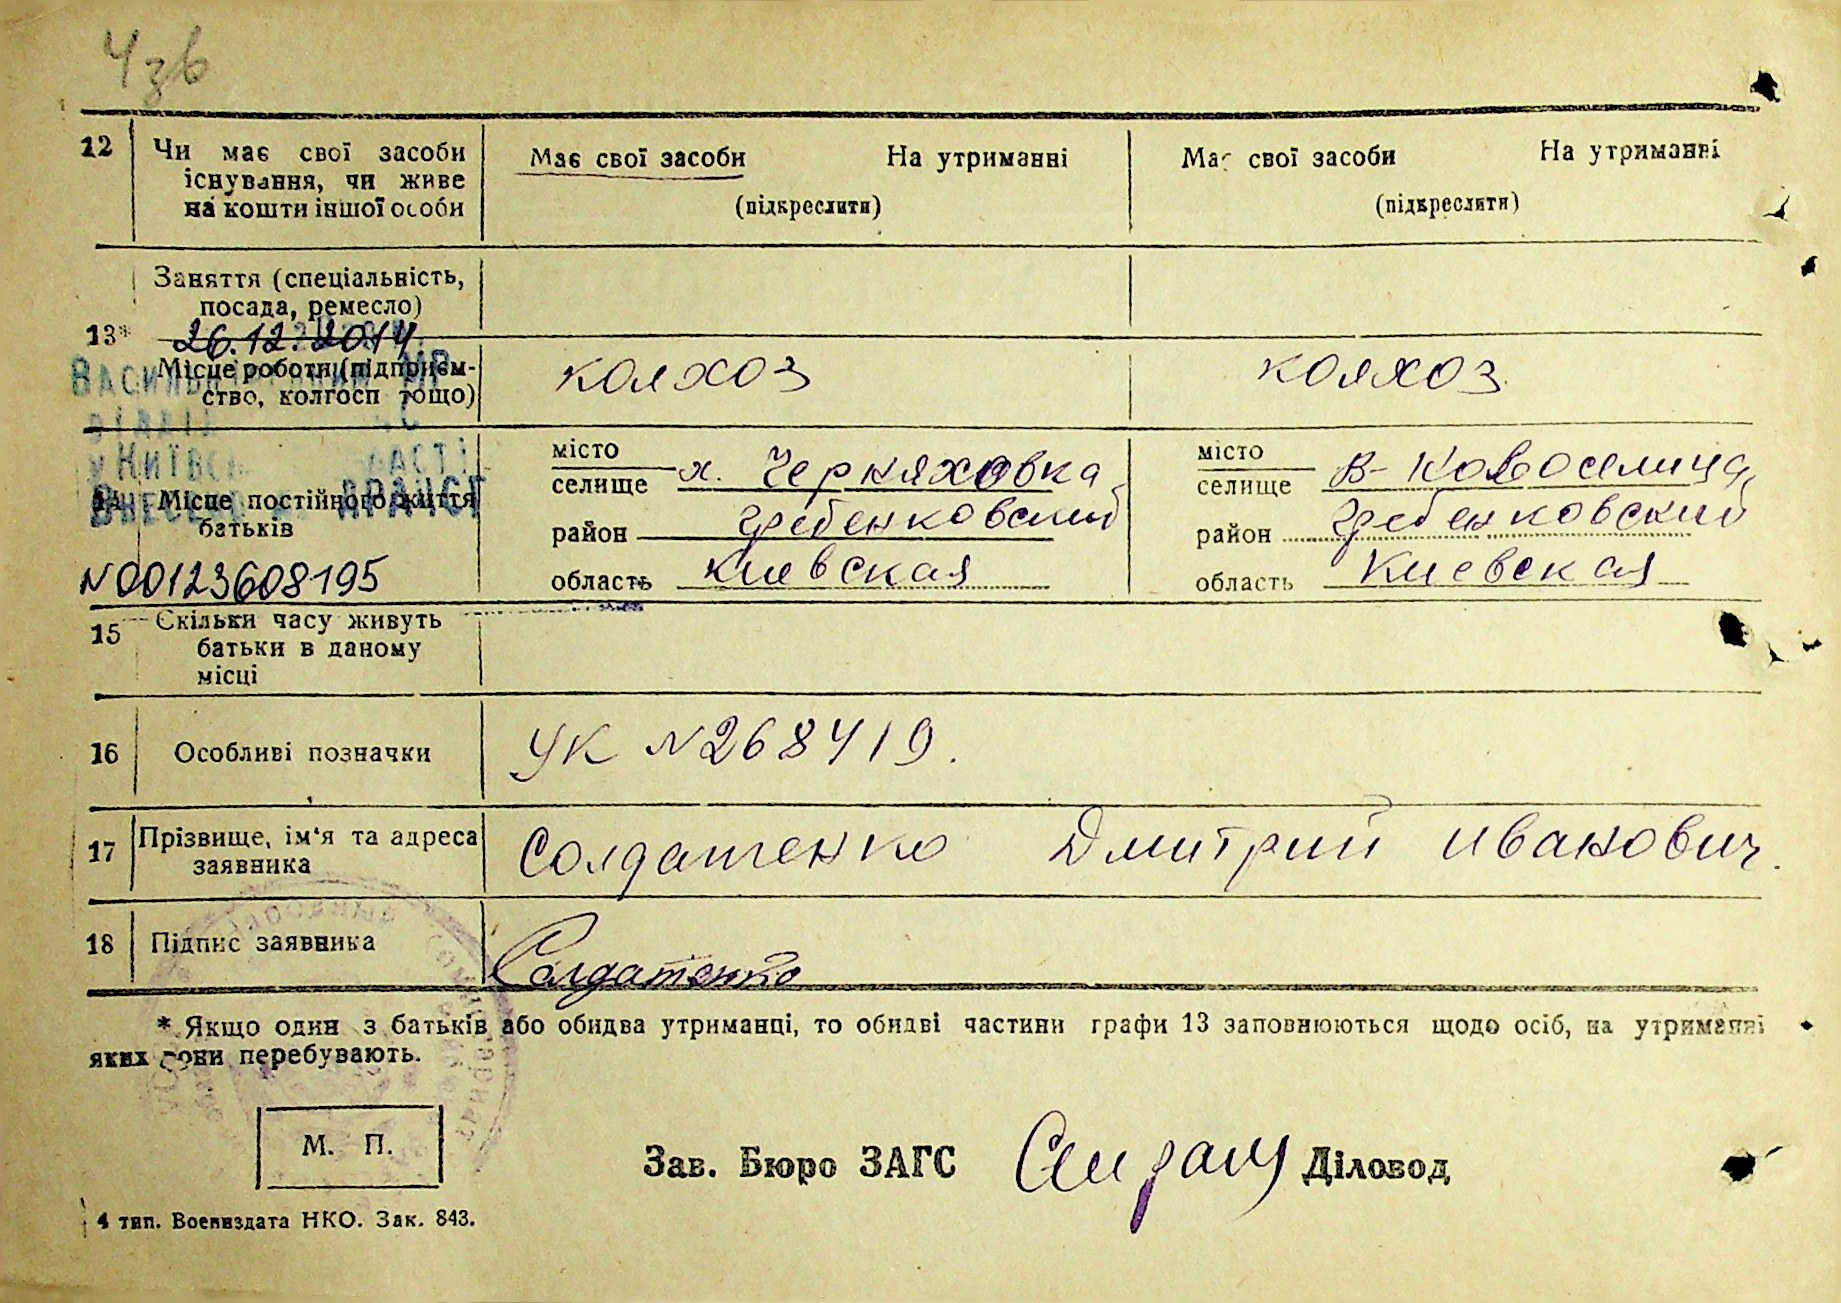 12 Чи має свої засоби
існування, чи живе
на кошти іншої особи
Має свої засоби На утриманні
(підкреслити)
Має свої засоби На утриманні
(підкреслити)
13* Заняття (спеціальність,
посада, ремесло)
26.12.2014
Місце роботи (підприєм-
ство, колгосп тощо)
колхоз
колхоз
Місце постійного життя
батьків
N00123608195
місто
селище х. Черняховка
район Гребенковский
область Киевская
місто
селище В-Новоселица
район Гребенковский
область Киевская
15 Скільки часу живуть
батьки в даному
місці
16 Особливі позначки УК N268419.
17 Прізвище, ім'я та адреса
заявника
Солдатенко Дмитрий Иванович.
18 Підпис заявника Солдатенко
* Якщо один з батьків або обидва утриманці, то обидві частини графи 13 заповнюються щодо осіб, на утриманні
яких вони перебувають.
М. П.
Зав. Бюро ЗАГС Діловод
4 тип. Воениздата НКО. Зак. 843.